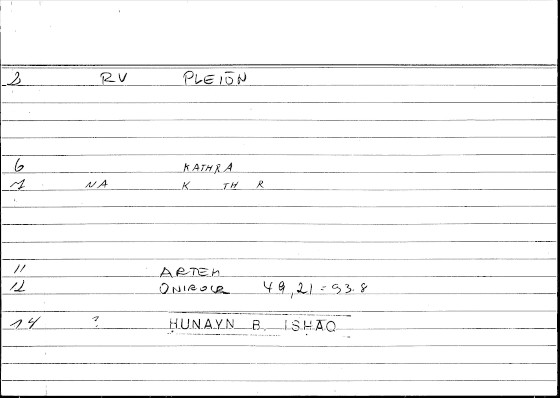 3 RV PLEIŌN
6 KATHRA
7 NA K TH R
11 ARTEM
12 ONIROCR 49,21 = 93.8
14 ? ḤUNAYN B. ISḤĀQ